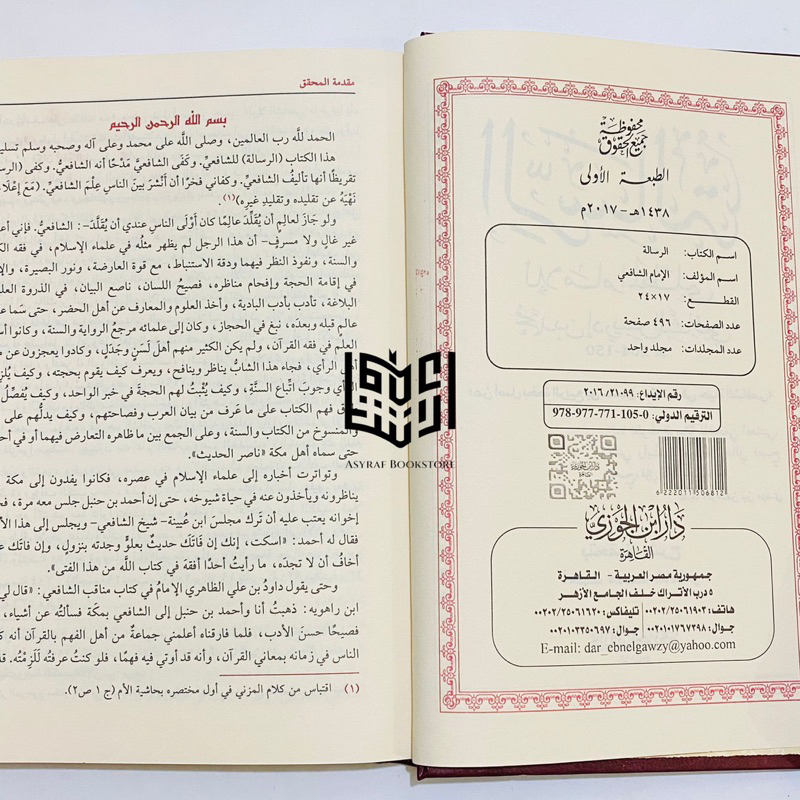 محفوظة
جميع الحقوق
الطبعة الأولى
١٤٣٨هـ - ٢٠١٧م
اسم الكتاب: الرسالة
اسم المؤلف: الإمام الشافعي
القطع: ١٧×٢٤
عدد الصفحات: ٤٩٦ صفحة
عدد المجلدات: مجلد واحد
رقم الإيداع: ٢٠١٦/٢١٠٩٩
الترقيم الدولي: 978-977-771-105-0
6222011506812
دار ابن الجوزي
القاهرة
جمهورية مصر العربية - القاهرة
٥ درب الأتراك خلف الجامع الأزهر
هاتف: ٠٠٢٠٢/٢٥٠٦١٩٠٣ تليفاكس: ٠٠٢٠٢/٢٥٠٦١٦٢٠
جوال: ٠٠٢٠١٠١٧٦٧٣٩٨ جوال: ٠٠٢٠١٠٣٣٥٠٦٩٧
E-mail: dar_ebnelgawzy@yahoo.com
مقدمة المحقق
بسم الله الرحمن الرحيم
الحمد لله رب العالمين، وصلى الله على محمد وعلى آله وصحبه وسلم
هذا الكتاب (الرسالة) للشافعيِّ. وكَفَى الشافعيَّ مَدْحًا أنه الشافعيُّ. وكفى
تقريظًا أنها تأليفُ الشافعيِّ. وكفاني فخرًا أن أَنْشُرَ بين الناسِ عِلْمَ الشافعيِّ. (مَعَ
نَهْيَهُ عن تقليده وتقليدِ غيره)(١).
ولو جَازَ لعالِمٍ أن يُقَلِّدَ عالِمًا كان أَوْلَى الناسِ عندي أن يُقَلَّدَ-: الشافعيُّ. فإني
غير غالٍ ولا مسرفٍ- أن هذا الرجل لم يظهر مثلُه في علماء الإسلام، في فقه
والسنة، ونفوذ النظر فيهما ودقة الاستنباط، مع قوة العارضة، ونور البصيرة،
في إقامة الحجة وإفحام مناظره، فصيحُ اللسان، ناصع البيان، في الذروة
البلاغة، تأدب بأدب البادية، وأخذ العلوم والمعارف عن أهل الحضر، حتى سَمَا
عالمٍ قبله وبعدَه، نبغ في الحجاز، وكان إلى علمائه مرجعُ الرواية والسنة، وكانوا
العلم في فقه القرآن، ولم يكن الكثير منهم أهلَ لَسَنٍ وجَدَلٍ، وكادوا يعجزون عن
أهل الرأي، فجاء هذا الشابُّ يناظر وينافح، ويعرف كيف يقوم بحجته،
وجوبَ اتِّباع السنَّةِ، وكيف يُثْبِتُ لهم الحجة في خبر الواحد، وكيف
فهم الكتاب على ما عَرف من بيان العرب وفصاحتهم، وكيف يدلُّهم
والمنسوخ من الكتاب والسنة، وعلى الجمع بين ما ظاهره التعارض فيهما أو في
حتى سماه أهل مكة «ناصر الحديث».
وتواترت أخباره إلى علماء الإسلام في عصره، فكانوا يفدون إلى مكة
يناظرونه ويأخذون عنه في حياة شيوخه، حتى إن أحمد بن حنبل جلس معه مرة،
إخوانه يعتب عليه أن تَرك مجلسَ ابن عُيينة- شيخ الشافعي- ويجلس إلى هذا
فقال له أحمد: «اسكت، إنك إن فَاتَكَ حديثٌ بعلوٍّ وجدته بنزولٍ، وإن فاتك
أخافُ أن لا تجدَه، ما رأيتُ أحدًا أفقهَ في كتاب اللَّه من هذا الفتى».
وحتى يقول داود بن علي الظاهري الإمام في كتاب مناقب الشافعي: «قال
ابن راهويه: ذهبتُ أنا وأحمد بن حنبل إلى الشافعي بمكّة فسألتُه عن أشياء،
فصيحًا حسنَ الأدب، فلما فارقناه أعلمني جماعةٌ من أهل الفهم بالقرآن أنه
الناس في زمانه بمعاني القرآن، وأنه قد أوتي فيه فهمًا، فلو كنتُ عرفتُه لَلَزِمْتُه.
(١) اقتباس من كلام المزني في أول مختصره بحاشية الأم (ج ١ ص٢).
ASYRAF BOOKSTORE